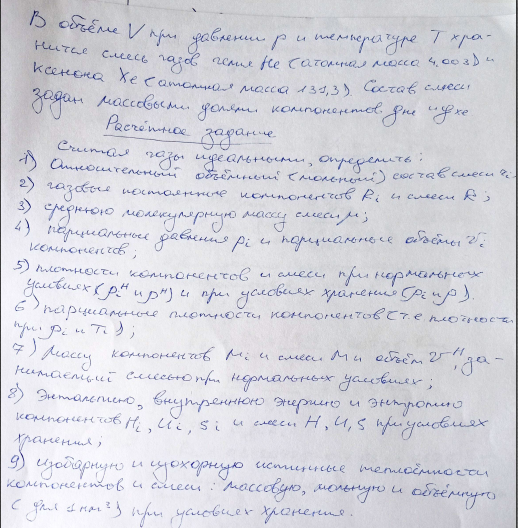 В объёме V при давлении p и температуре T хра-
нится смесь газов гелия He (атомная масса 4,003) и
ксенона Xe (атомная масса 131,3). Состав смеси
задан массовыми долями компонентов gHe и gXe
Расчётное задание
Считая газы идеальными, определить:
1) Относительный объёмный (мольный) состав смеси ri.
2) газовые постоянные компонентов Ri и смеси R;
3) среднюю молекулярную массу смеси μ;
4) парциальные давления pi и парциальные объёмы Vi
компонентов;
5) плотности компонентов и смеси при нормальных
условиях (ρiн и ρн) и при условиях хранения (ρi и ρ).
6) парциальные плотности компонентов (т.е плотности
при pi и Ti);
7) Массу компонентов Mi и смеси M и объём Vн, за-
нимаемый смесью при нормальных условиях;
8) Энтальпию, внутреннюю энергию и энтропию
компонентов Hi, Ui, Si и смеси H, U, S при условиях
хранения;
9) изобарную и изохорную истинные теплоёмкости
компонентов и смеси: массовую, мольную и объёмную
(для 1 нм³) при условиях хранения.